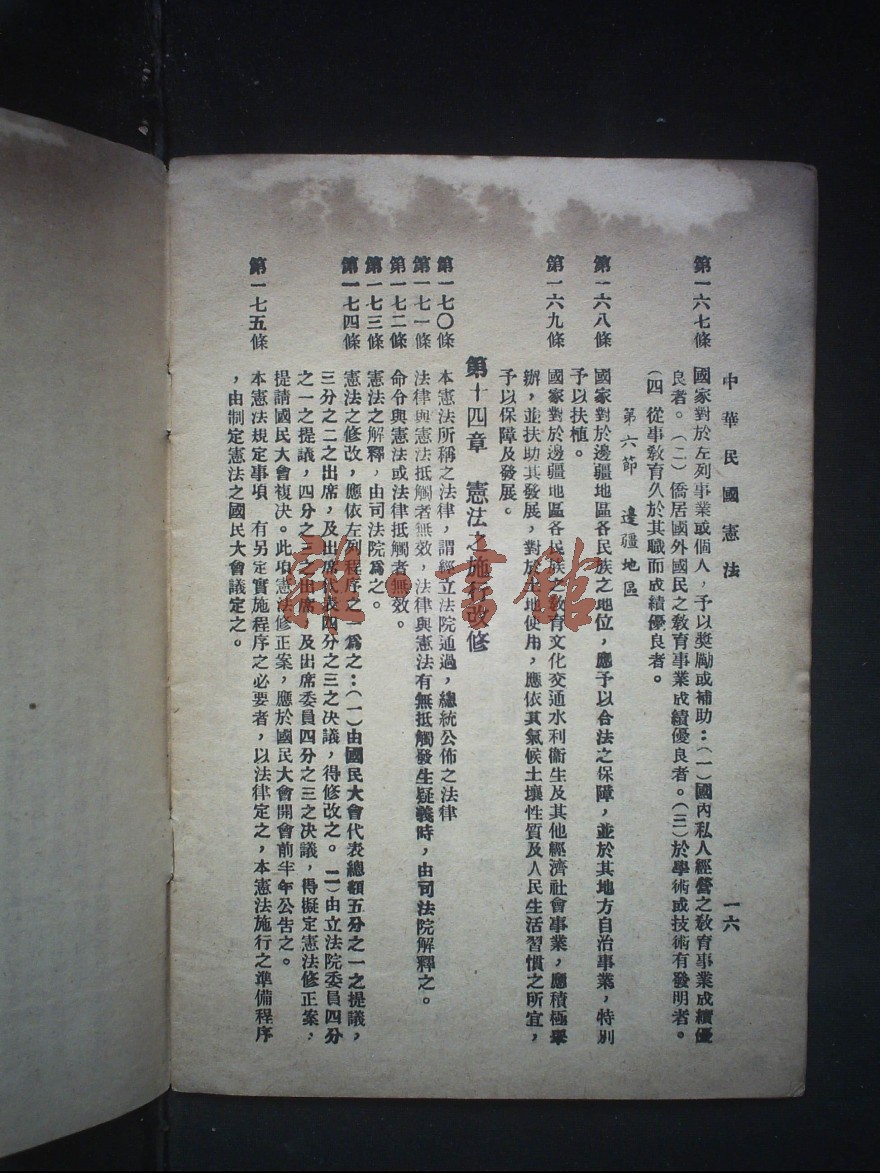 中華民國憲法
一六
第一六七條 國家對於左列事業或個人，予以奬勵或補助：(一)國內私人經營之敎育事業成績優
良者。(二)僑居國外國民之敎育事業成績優良者。(三)於學術或技術有發明者。
(四 從事敎育久於其職而成績優良者。
第六節 邊疆地區
第一六八條 國家對於邊疆地區各民族之地位，應予以合法之保障，並於其地方自治事業，特別
予以扶植。
第一六九條 國家對於邊疆地區各民族之敎育文化交通水利衞生及其他經濟社會事業，應積極舉
辦，並扶助其發展，對於土地使用，應依其氣候土壤性質及人民生活習慣之所宜，
予以保障及發展。
第十四章 憲法之施行改修
第一七〇條 本憲法所稱之法律，謂經立法院通過，總統公佈之法律
第一七一條 法律與憲法抵觸者無效，法律與憲法有無抵觸發生疑義時，由司法院解釋之。
第一七二條 命令與憲法或法律抵觸者無效。
第一七三條 憲法之解釋，由司法院爲之。
第一七四條 憲法之修改，應依左列程序之一爲之：(一)由國民大會代表總額五分之一之提議，
三分之二之出席，及出席代表四分之三之決議，得修改之。 二)由立法院委員四分
之一之提議，四分之三之出席 及出席委員四分之三之決議，得擬定憲法修正案，
提請國民大會複決。此項憲法修正案，應於國民大會開會前半年公告之。
第一七五條 本憲法規定事項 有另定實施程序之必要者，以法律定之，本憲法施行之準備程序
，由制定憲法之國民大會議定之。
雜·書館